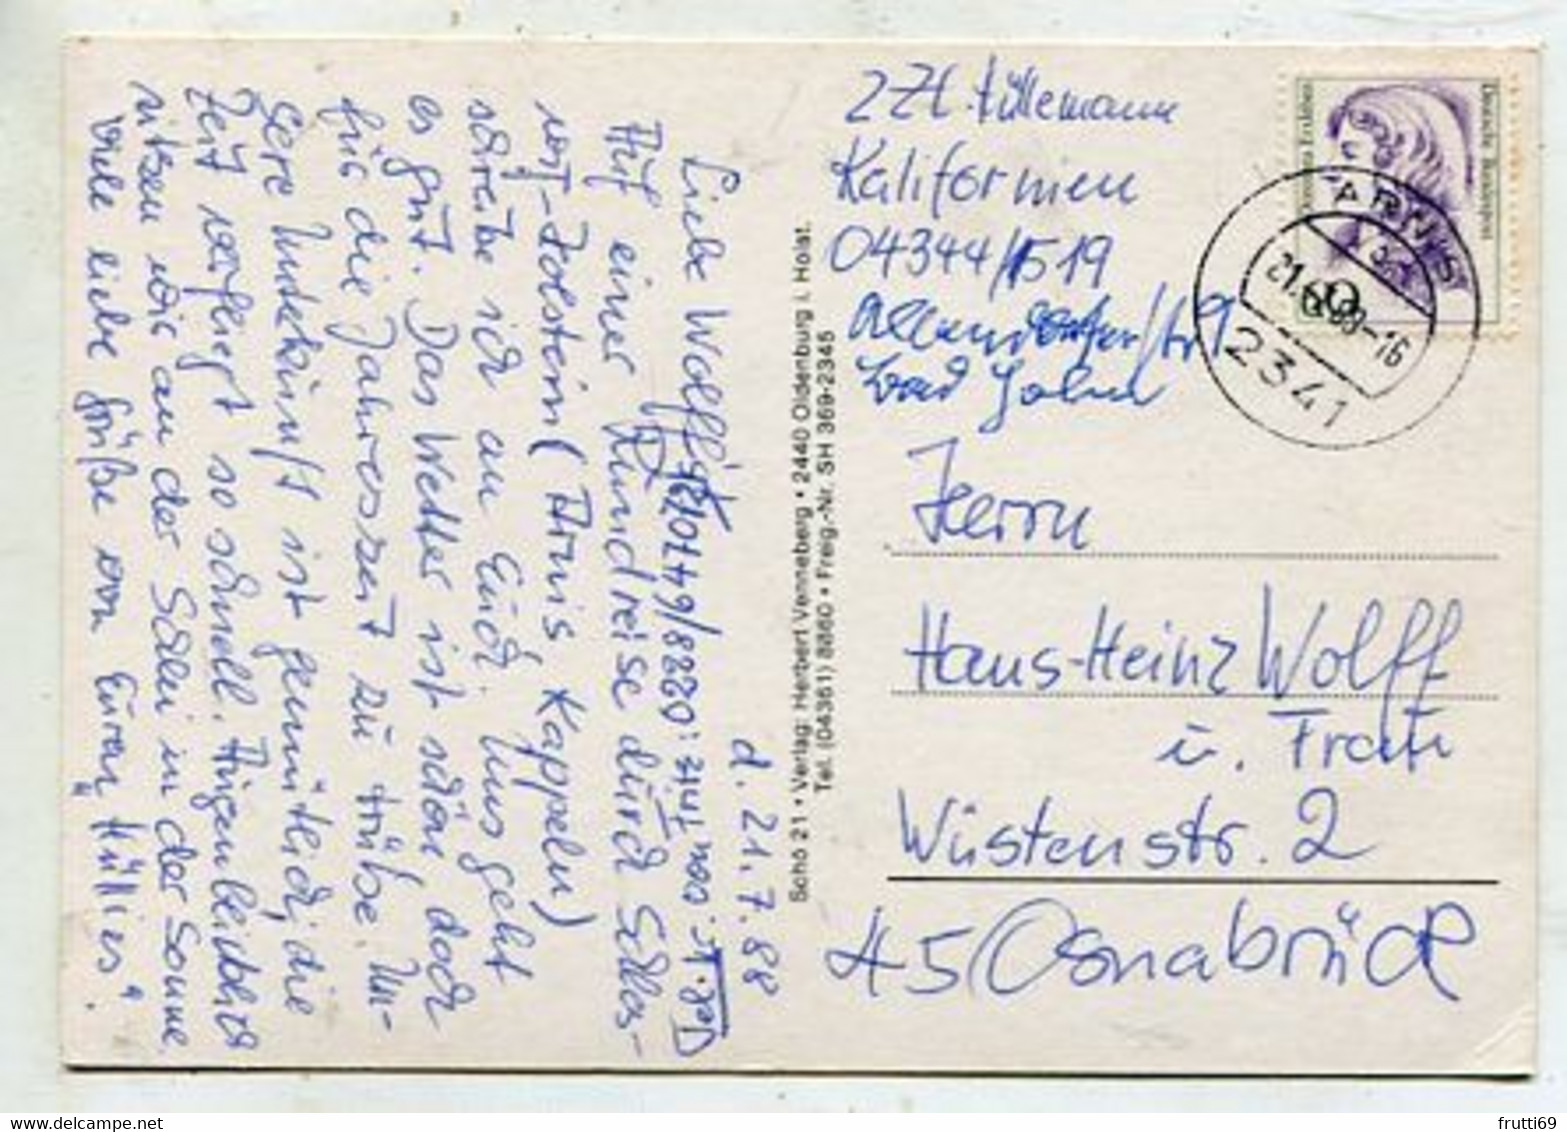 d. 21.7.88
Liebe Wolffs!
Auf einer Rundreise durch Schles-
wig-Holstein (Arnis Kappeln)
schreibe ich an Euch. Uns geht
es gut. Das Wetter ist schön doch
für die Jahreszeit zu trübe. Un-
sere Unterkunft ist gemütlich, die
Zeit verfliegt so schnell. Augenblicklich
sitzen wir an der Schlei in der Sonne
viele liebe Grüße von Euren "Hüllies".
Schö 21 • Verlag: Herbert Venneberg • 2440 Oldenburg i. Holst.
Tel. (04361) 8860 • Freig.-Nr. SH 369-2345
z Zt. Hüllemann
Kalifornien
04344/1519
Deutsche Bundespost
ARNIS
21. 88-16
2341
Herrn
Hans-Heinz Wolff
u. Frau
Wüstenstr. 2
45 Osnabrück
frutti69